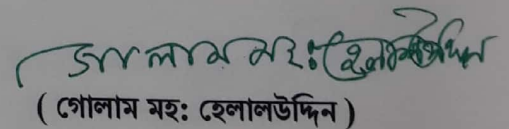 গোলাম মহ: হেলালউদ্দিন
( গোলাম মহ: হেলালউদ্দিন )